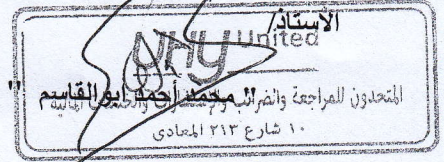 الأستاذ/
UHY United
" محمد أحمد أبو القاسم "
المتحدون للمراجعة والضرائب المالية
١٠ شارع ٢١٣ المعادي